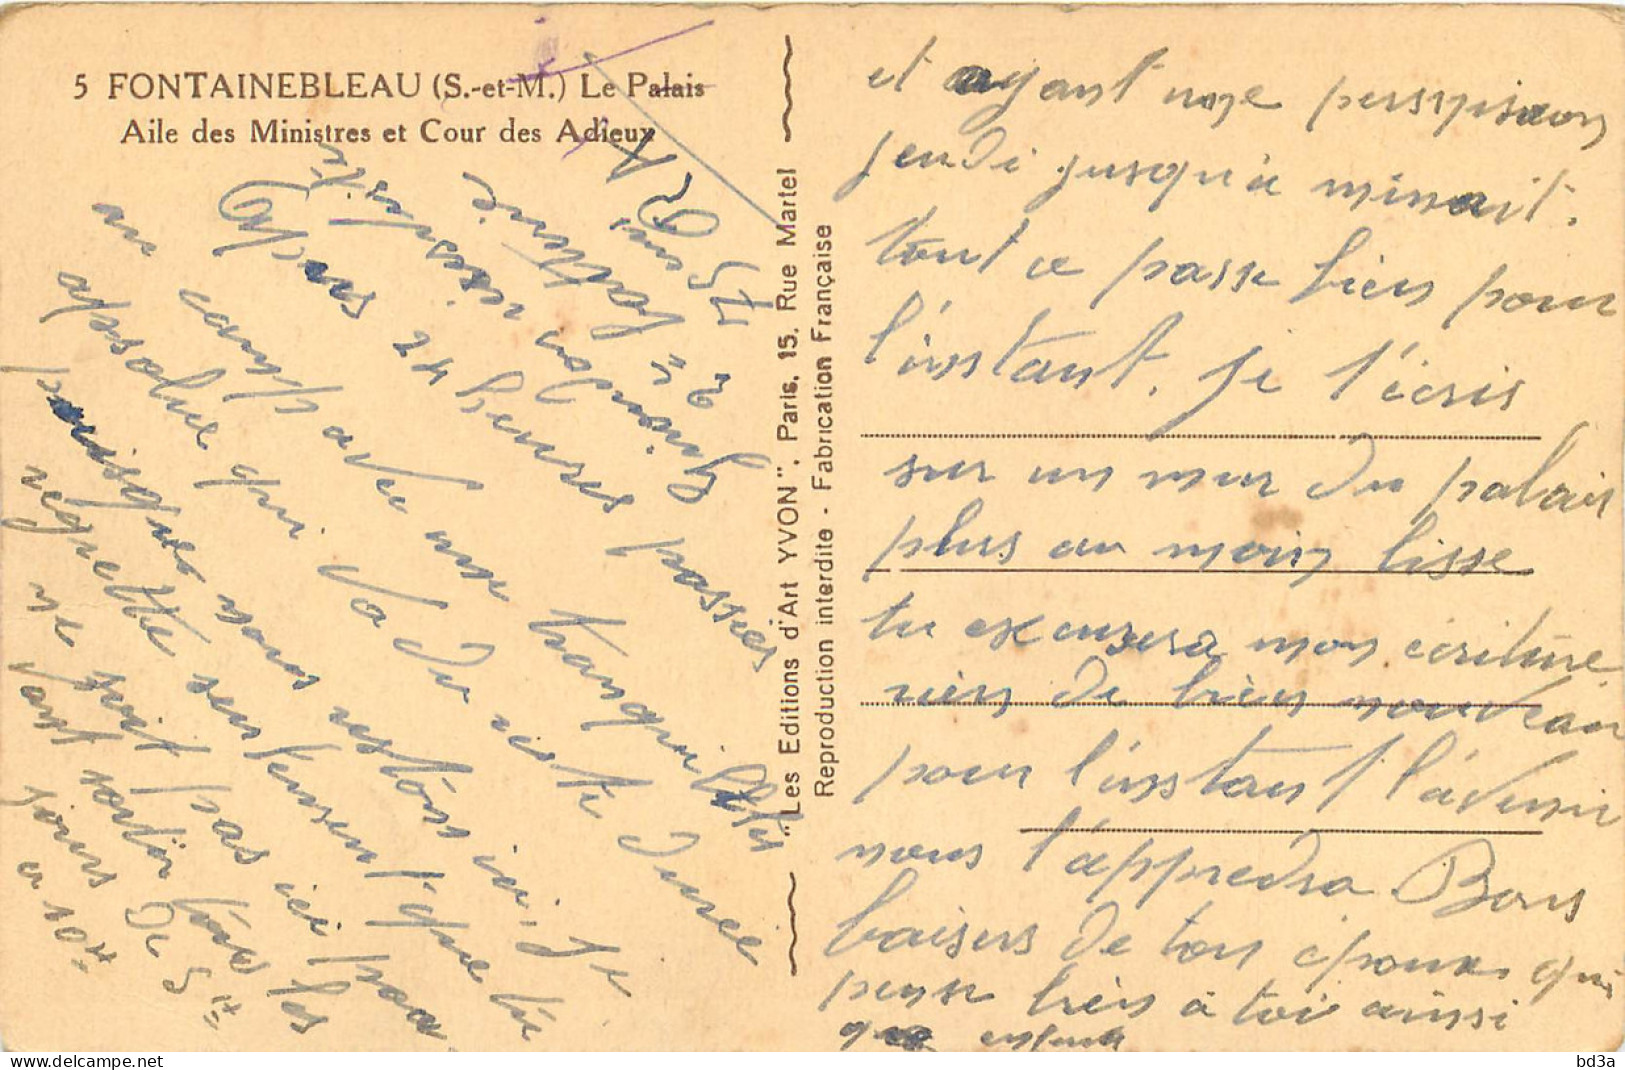 5 FONTAINEBLEAU (S.-et-M.) Le Palais
Aile des Ministres et Cour des Adieux
Après 24 heures passées
au camp avec une tranquilités
absolue qui va du reste durée
puisque nous restons ici, Je
regrette seulement que tu
ne soit pas ici pour
vant sortir tous les
jours de 5H
a 10H
"Les Editions d'Art YVON", Paris, 15, Rue Martel
Reproduction interdite - Fabrication Française
et ayant une permission
jeudi jusqu'à minuit.
tout ce passe bien pour
l'instant. Je t'écris
sur un mur du palais
plus au moin lisse
tu excusera mon écriture
rien de bien nouveau
pour l'instant l'avenir
nous l'apprendra Bons
baisers de ton époux qui
pense bien à toi ainsi
que enfants
bd3a